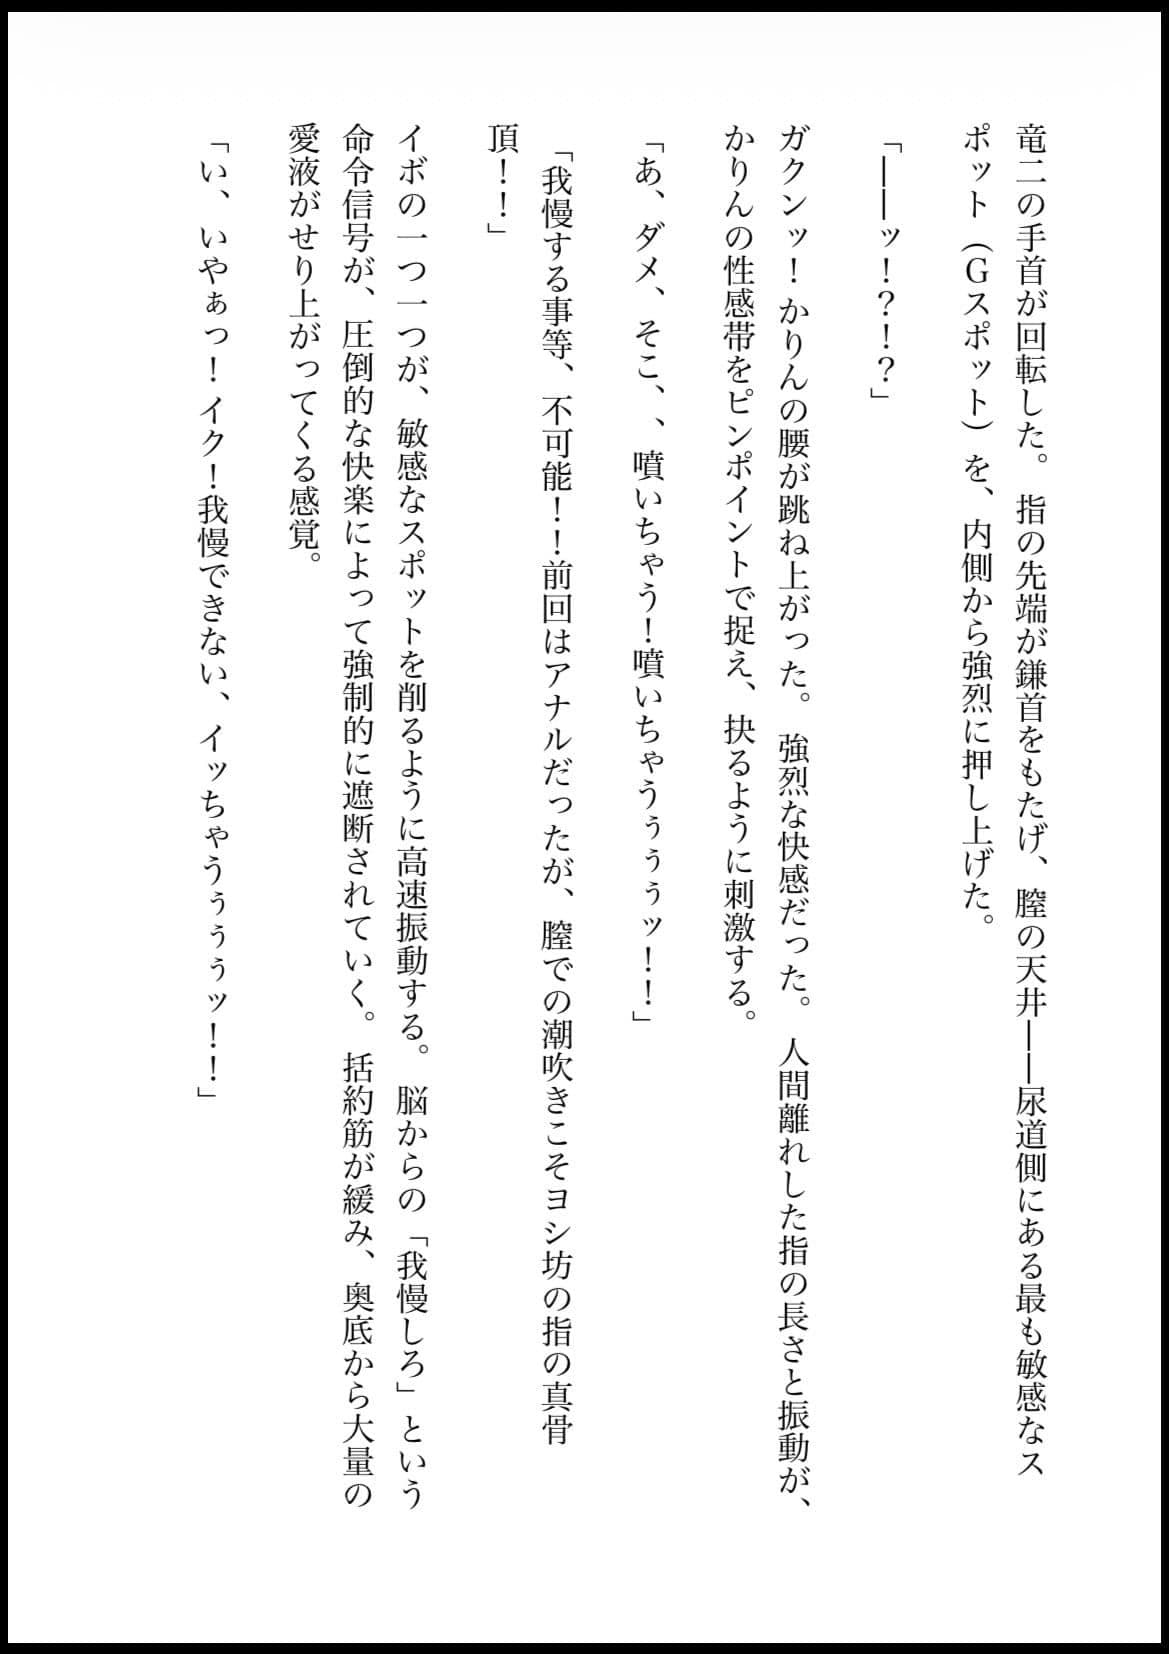 竜二の手首が回転した。 指の先端が鎌首をもたげ、膣の天井――尿道側にある最も敏感なス
ポット（Gスポット）を、内側から強烈に押し上げた。
「――ッ！？！？」
ガクンッ！かりんの腰が跳ね上がった。 強烈な快感だった。 人間離れした指の長さと振動が、
かりんの性感帯をピンポイントで捉え、抉るように刺激する。
「あ、ダメ、そこ、、噴いちゃう！噴いちゃうぅぅぅッ！！」
「我慢する事等、不可能！！前回はアナルだったが、膣での潮吹きこそヨシ坊の指の真骨
頂！！」
イボの一つ一つが、敏感なスポットを削るように高速振動する。 脳からの「我慢しろ」という
命令信号が、圧倒的な快楽によって強制的に遮断されていく。 括約筋が緩み、奥底から大量の
愛液がせり上がってくる感覚。
「い、いやぁっ！イク！我慢できない、イッちゃうぅぅぅッ！！」